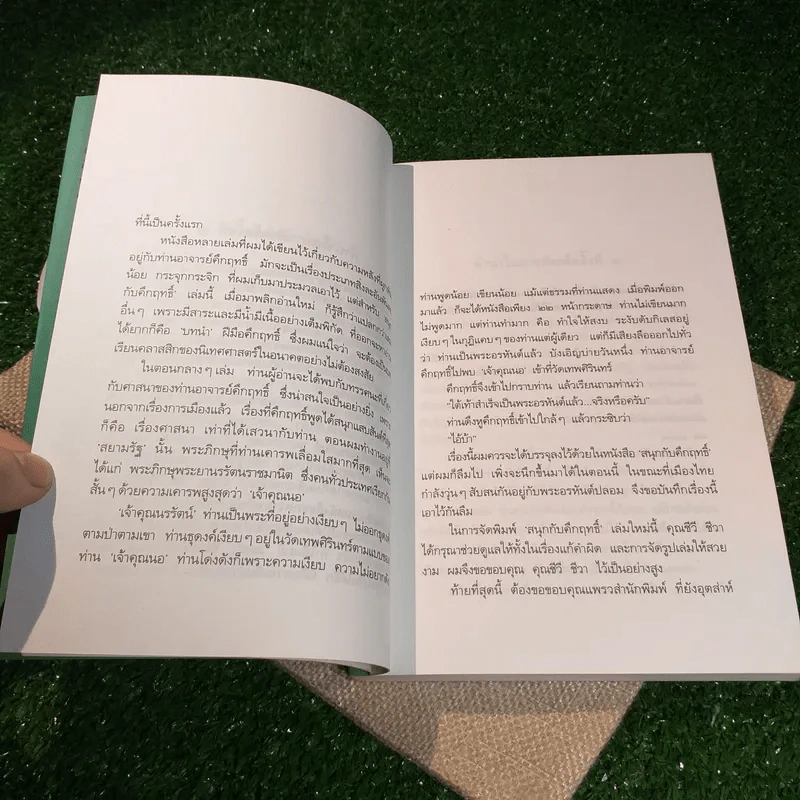 ที่นี้เป็นครั้งแรก
หนังสือหลายเล่มที่ผมได้เขียนไว้เกี่ยวกับความหลังที่
อยู่กับท่านอาจารย์คึกฤทธิ์ มักจะเป็นเรื่องประเภทสิ่งละอันพัน
น้อย กระจุกกระจิก ที่ผมเก็บมาประมวลเอาไว้ แต่สำหรับ
กับคึกฤทธิ์' เล่มนี้ เมื่อมาพลิกอ่านใหม่ ก็รู้สึกว่าแปลกกว่า
อื่นๆ เพราะมีสาระและมีน้ำมีเนื้ออย่างเต็มพิกัด ที่ออกจะ
ได้ยากก็คือ 'บทนำ' ฝีมือคึกฤทธิ์ ซึ่งผมแน่ใจว่า จะต้องเป็น
เรียนคลาสสิกของนิเทศศาสตร์ในอนาคตอย่างไม่ต้องสงสัย
ในตอนกลางๆ เล่ม ท่านผู้อ่านจะได้พบกับทรรศนะที่
กับศาสนาของท่านอาจารย์คึกฤทธิ์ ซึ่งน่าสนใจเป็นอย่างยิ่ง เพราะ
นอกจากเรื่องการเมืองแล้ว เรื่องที่คึกฤทธิ์พูดได้สนุกแสบสันต์ที่สุด
ก็คือ เรื่องศาสนา เท่าที่ได้เสวนากับท่าน ตอนผมทำงาน
'สยามรัฐ' นั้น พระภิกษุที่ท่านเคารพเลื่อมใสมากที่สุด เห็น
ได้แก่ พระภิกษุพระยานรรัตนราชมานิต ซึ่งคนทั่วประเทศเรียก
สั้นๆ ด้วยความเคารพสูงสุดว่า 'เจ้าคุณนอ'
'เจ้าคุณนรรัตน์' ท่านเป็นพระที่อยู่อย่างเงียบๆ ไม่ออกธุดงค์
ตามป่าตามเขา ท่านธุดงค์เงียบๆ อยู่ในวัดเทพศิรินทร์ตามแบบของ
ท่าน 'เจ้าคุณนอ' ท่านโด่งดังก็เพราะความเงียบ ความไม่อยากดัง
ท่านพูดน้อย เขียนน้อย แม้แต่ธรรมที่ท่านแสดง เมื่อพิมพ์ออก
มาแล้ว ก็จะได้หนังสือเพียง ๒๒ หน้ากระดาษ ท่านไม่เขียนมาก
ไม่พูดมาก แต่ท่านทำมาก คือ ทำใจให้สงบ ระงับดับกิเลสอยู่
เงียบๆ ในกุฏิแคบๆ ของท่านแต่ผู้เดียว แต่ก็มีเสียงลือออกไปทั่ว
ว่า ท่านเป็นพระอรหันต์แล้ว บังเอิญบ่ายวันหนึ่ง ท่านอาจารย์
คึกฤทธิ์ไปพบ 'เจ้าคุณนอ' เข้าที่วัดเทพศิรินทร์
คึกฤทธิ์จึงเข้าไปกราบท่าน แล้วเรียนถามท่านว่า
"ใต้เท้าสำเร็จเป็นพระอรหันต์แล้ว...จริงหรือครับ"
ท่านดึงหูคึกฤทธิ์เข้าไปใกล้ๆ แล้วกระซิบว่า
"ไอ้บ้า"
เรื่องนี้ผมควรจะได้บรรจุลงไว้ด้วยในหนังสือ 'สนุกกับคึกฤทธิ์'
แต่ผมก็ลืมไป เพิ่งจะนึกขึ้นมาได้ในตอนนี้ ในขณะที่เมืองไทย
กำลังวุ่นๆ สับสนกันอยู่กับพระอรหันต์ปลอม จึงขอบันทึกเรื่องนี้
เอาไว้กันลืม
ในการจัดพิมพ์ 'สนุกกับคึกฤทธิ์' เล่มใหม่นี้ คุณชีวี ชีวา
ได้กรุณาช่วยดูแลให้ทั้งในเรื่องแก้คำผิด และการจัดรูปเล่มให้สวย
งาม ผมจึงขอขอบคุณ คุณชีวี ชีวา ไว้เป็นอย่างสูง
ท้ายที่สุดนี้ ต้องขอขอบคุณแพรวสำนักพิมพ์ ที่ยังอุตส่าห์